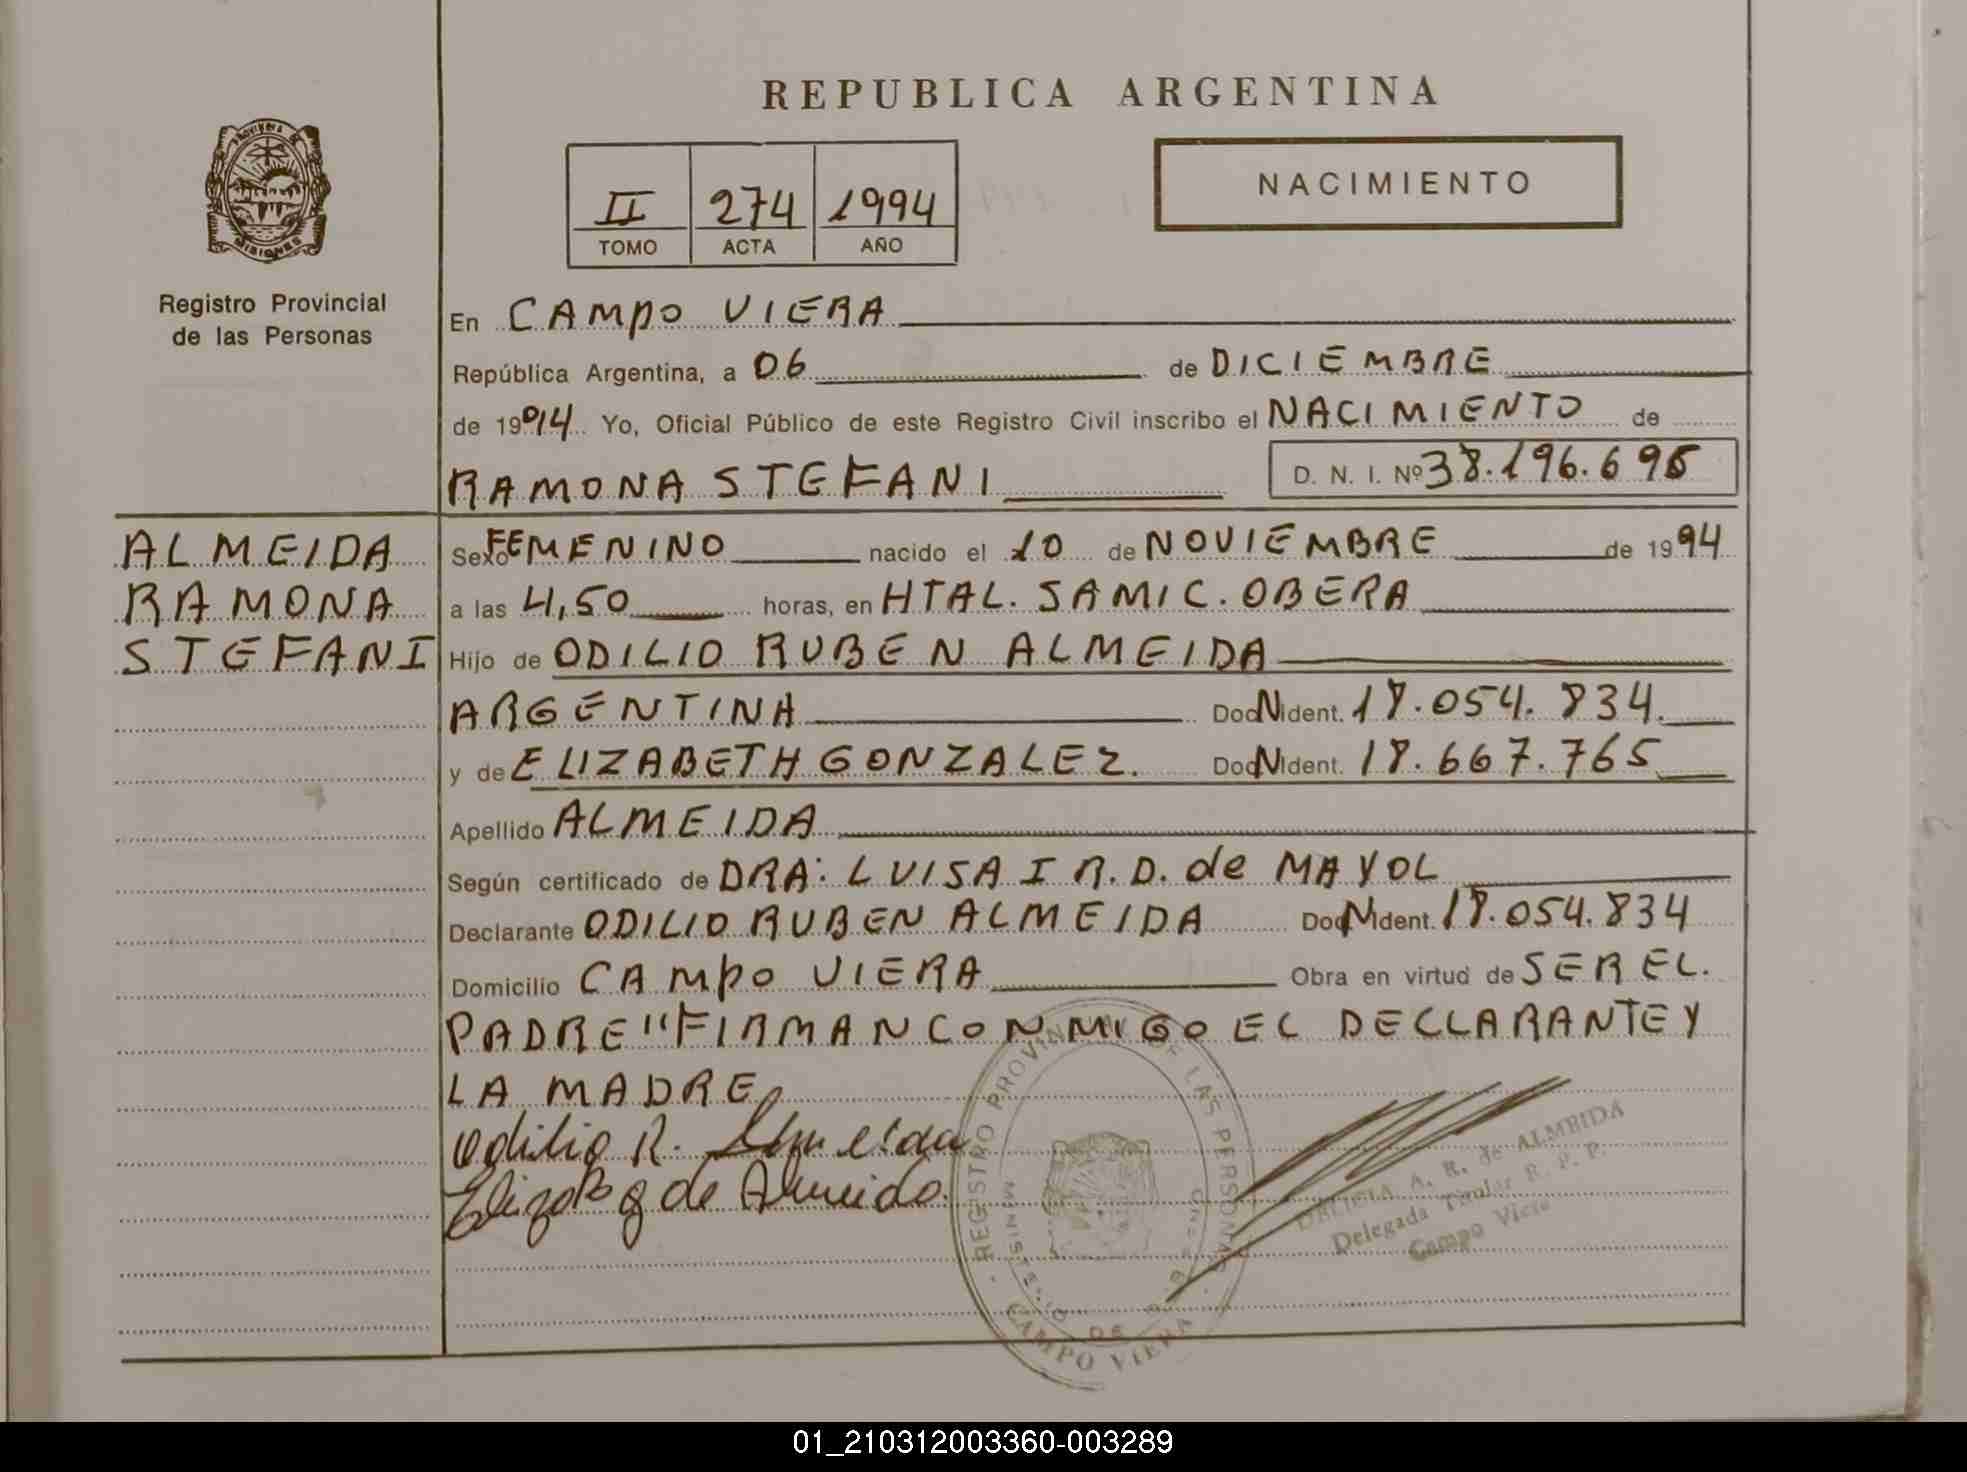 REPUBLICA ARGENTINA
NACIMIENTO
II 274 1994
TOMO ACTA AÑO
MISIONES
Registro Provincial
de las Personas
En CAMPO VIERA
República Argentina, a 06 de DICIEMBRE
de 1994 Yo, Oficial Público de este Registro Civil inscribo el NACIMIENTO de
RAMONA STEFANI D. N. I. Nº 38.196.695
ALMEIDA
RAMONA
STEFANI
Sexo FEMENINO nacido el 10 de NOVIEMBRE de 1994
a las 4,50 horas, en HTAL. SAMIC. OBERA
Hijo de ODILIO RUBEN ALMEIDA
ARGENTINA Doc N Ident. 18.054.834.
y de ELIZABETH GONZALEZ. Doc N Ident. 18.667.765
Apellido ALMEIDA
Según certificado de DRA: LUISA I R.D. de MAYOL
Declarante ODILIO RUBEN ALMEIDA Doc N Ident. 18.054.834
Domicilio CAMPO VIERA Obra en virtud de SER EL.
PADRE" FIRMAN CON MIGO EL DECLARANTE Y
LA MADRE
Odilio R. Almeida
g de Almeida.
REGISTRO PROVINCIAL DE LAS PERSONAS
MINISTERIO DE
CAMPO VIERA
A. R. de ALMEIDA
Delegada Titular R. P. P.
Campo Viera
01_210312003360-003289